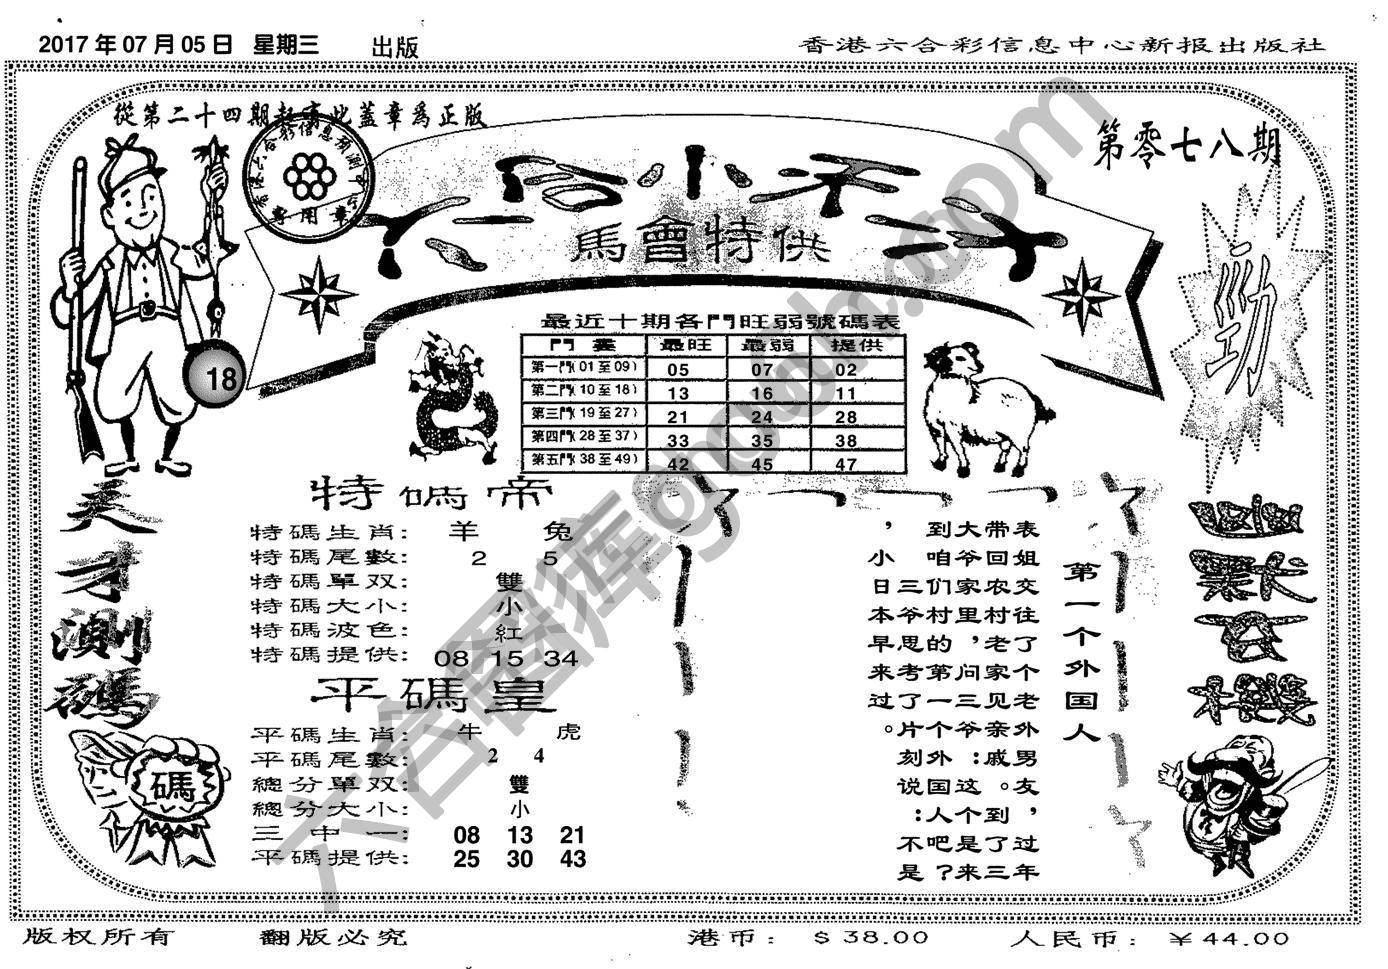 2017年07月05日 星期三 出版
香港六合彩信息中心新报出版社
第零七八期
馬會特供
18
勁
最近十期各門旺弱號碼表
門 最旺 最弱 提供
第一門(01至09) 05 07 02
第二門(10至18) 13 16 11
第三門(19至27) 21 24 28
第四門(28至37) 33 35 38
第五門(38至49) 42 45 47
天才測碼
碼
特碼帝
特碼生肖: 羊 兔
特碼尾數: 2 5
特碼單双: 雙
特碼大小: 小
特碼波色: 紅
特碼提供: 08 15 34
平碼皇
平碼生肖: 牛 虎
平碼尾數: 2 4
總分單双: 雙
總分大小: 小
三中一: 08 13 21
平碼提供: 25 30 43
第一个外国人
表姐交往了个老外男友，过年
带回农村老家见亲戚。到了三
大爷家里，问三爷：这个是来
到咱们村的第一个外国人吧？
三爷思考了片刻说：不是
，小日本早来过。
版权所有 翻版必究 港币: $38.00 人民币: ￥44.00
六合图库